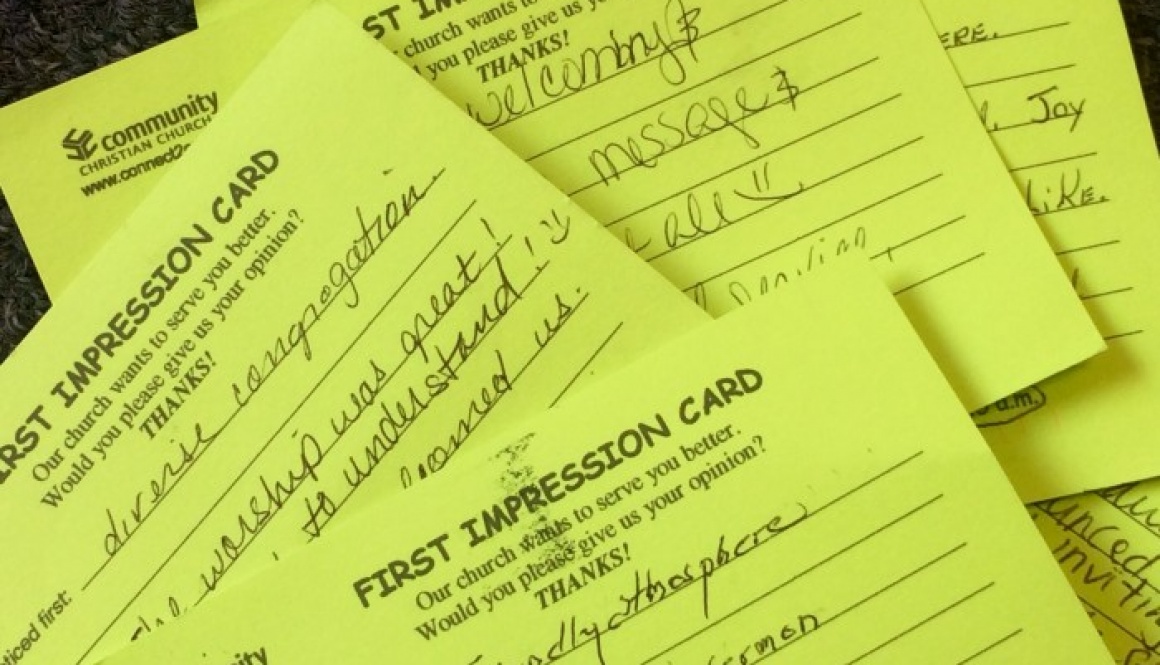 community
CHRISTIAN CHURCH
www.connect2
FIRST IMPRESSION CARD
Our church wants to serve you better.
Would you please give us your opinion?
THANKS!
diverse congregation.
worship was great!
to understand!
us.
oticed first:
ST IM
church wants to
you please give us yo
THANKS!
welcoming &
message &
all
serving
ERE.
Joy
LiKE.
a.m.
FIRST IMPRESSION CARD
Our church wants to serve you better.
Would you please give us your opinion?
THANKS!
ndly atmosphere
ermon
nity